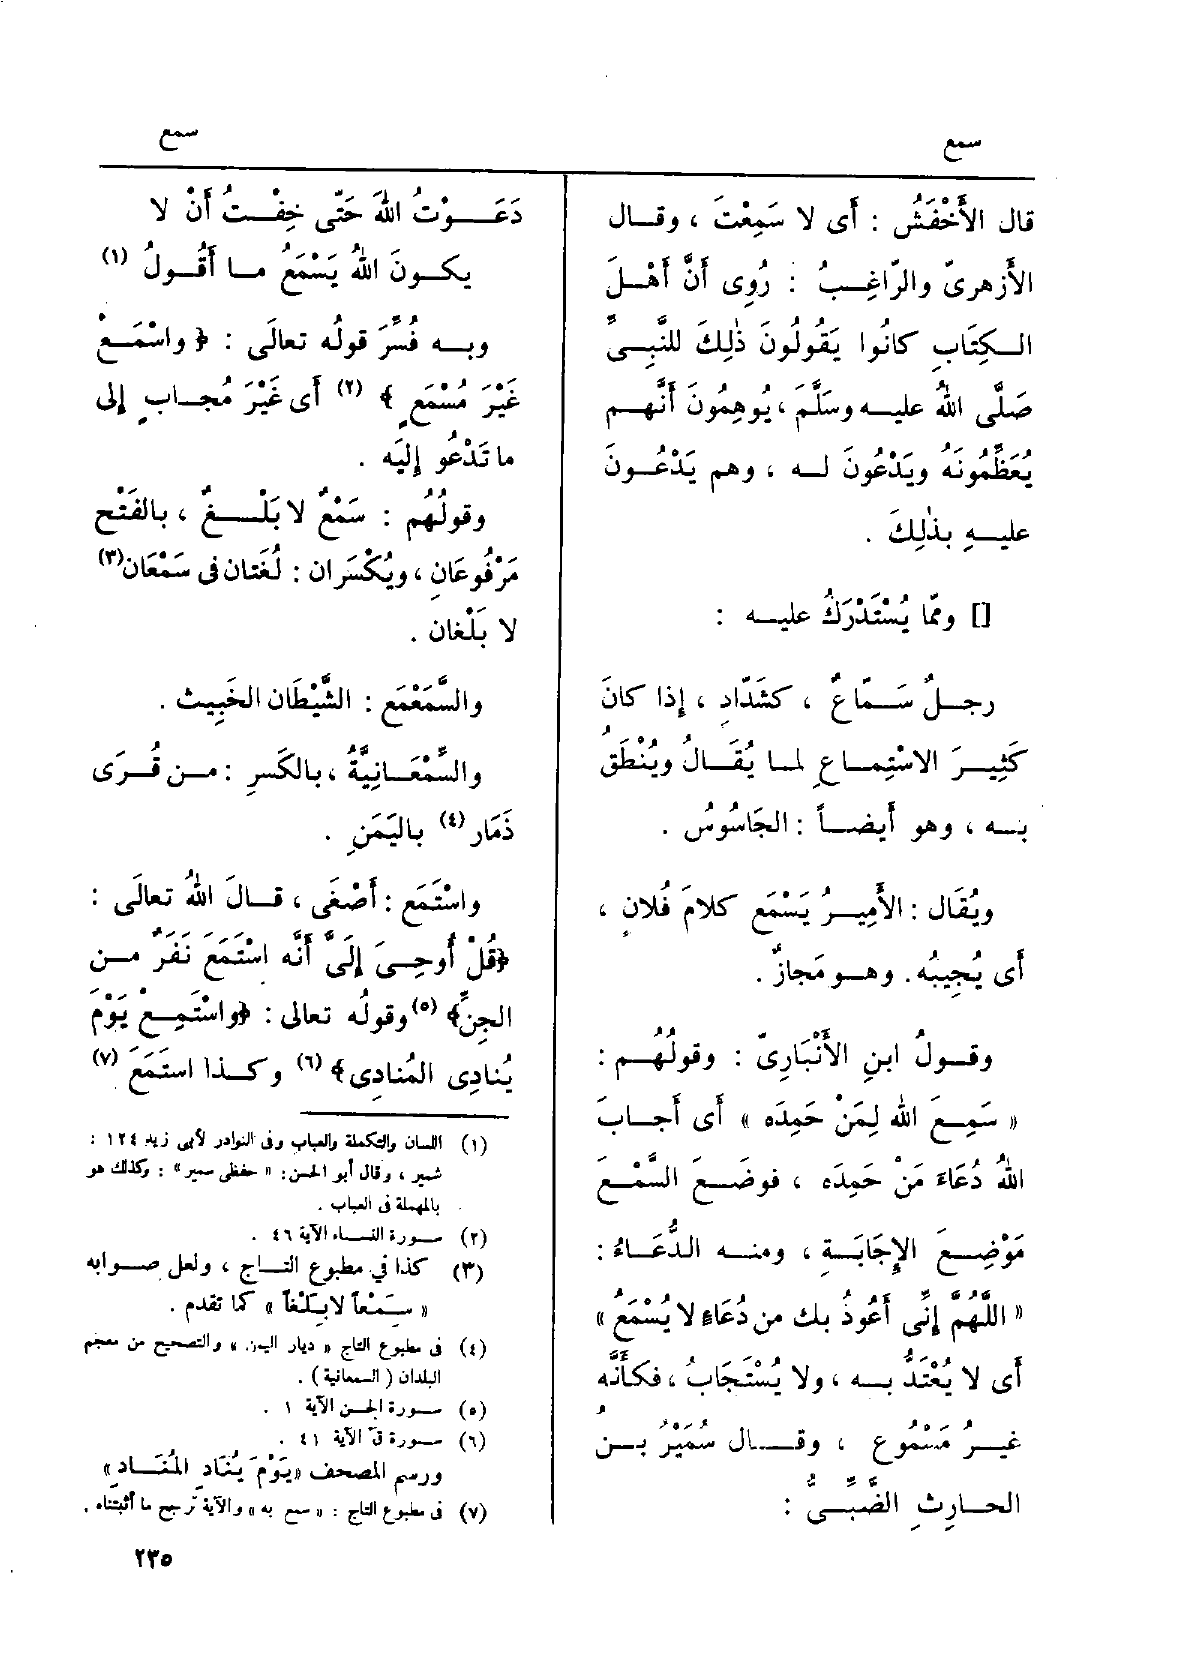 سمع
سمع
قال الأَخْفَشُ : أَى لا سَمِعْتَ ، وقال
الأَزهرىّ والرّاغِبُ : رُوِى أَنَّ أَهْلَ
الكِتَابِ كانُوا يَقُولُونَ ذٰلِكَ للنَّبِىِّ
صَلَّى اللهُ عليه وسَلَّمَ ، يُوهِمُونَ أَنَّهم
يُعَظِّمُونَهُ ويَدْعُونَ له ، وهم يَدْعُونَ
عليهِ بذٰلِكَ .
[] وممّا يُسْتَدْرَكُ عليه :
رجلٌ سَمّاعٌ ، كشَدّادٍ ، إِذا كانَ
كَثِيرَ الاسْتِماعِ لما يُقَالُ ويُنْطَقُ
به ، وهو أَيضاً : الجَاسُوسُ .
ويُقَال : الأَمِيرُ يَسْمَع كلامَ فُلانٍ ،
أَى يُجِيبُه . وهو مَجازٌ .
وقولُ ابنِ الأَنْبَارِىّ : وقولُهُم :
« سَمِعَ الله لِمَنْ حَمِدَه » أَى أَجابَ
اللهُ دُعَاءَ مَنْ حَمِدَه ، فوضَعَ السَّمْعَ
مَوْضِعَ الإِجَابَةِ ، ومنه الدُّعَاءُ :
« اللَّهُمَّ إِنِّى أَعُوذُ بك من دُعَاءٍ لا يُسْمَعُ »
أَى لا يُعْتَدُّ به ، ولا يُسْتَجَابُ ، فكأَنَّه
غيرُ مَسْمُوعٍ ، وقال سُمَيْرُ بنُ
الحارِثِ الضَّبِّىُّ :
دَعَوْتُ اللهَ حَتّى خِفْتُ أَنْ لا
يكونَ اللهُ يَسْمَعُ ما أَقُولُ (١)
وبه فُسِّرَ قولُه تعالَى : ﴿ واسْمَعْ
غَيْرَ مُسْمَعٍ ﴾ (٢) أَى غَيْرَ مُجابٍ إِلى
ما تَدْعُو إِلَيْه .
وقولُهُم : سَمْعٌ لا بَلْغٌ ، بالفَتْح
مَرْفُوعَانِ ، ويُكْسَران : لُغَتان فى سَمْعَان (٣)
لا بَلْغان .
والسَّمَعْمَع : الشَّيْطَان الخَبِيث .
والسِّمْعَانِيَّةُ ، بالكَسرِ : من قُرَى
ذَمَار (٤) باليَمَنِ .
واسْتَمَع : أَصْغَى ، قالَ اللهُ تعالَى :
﴿قُلْ أُوحِىَ إِلَىَّ أَنَّه اسْتَمَعَ نَفَرٌ من
الجِنِّ﴾ (٥) وقولُه تعالى : ﴿واسْتَمِعْ يَوْمَ
يُنادِى المُنادِى﴾ (٦) وكذا استَمَعَ (٧)
(١) اللسان والتكملة والعباب وفى النوادر لأبى زيد ١٢٤ :
شمير ، وقال أبو الحسن : « حفظى سمير » : وكذلك هو
بالمهملة فى العباب .
(٢) سورة النساء الآية ٤٦ .
(٣) كذا في مطبوع التاج ، ولعل صوابه
« سَمْعاً لابَلْغاً » كما تقدم .
(٤) فى مطبوع التاج « ديار اليمن » والتصحيح من معجم
البلدان ( السمعانية ) .
(٥) سورة الجن الآية ١ .
(٦) سورة قۤ الآية ٤١ .
ورسم المصحف «يَوْمَ يُنَادِ المُنَادِ»
(٧) فى مطبوع التاج : « سمع به » والآية ترجح ما أثبتناه .
٢٣٥